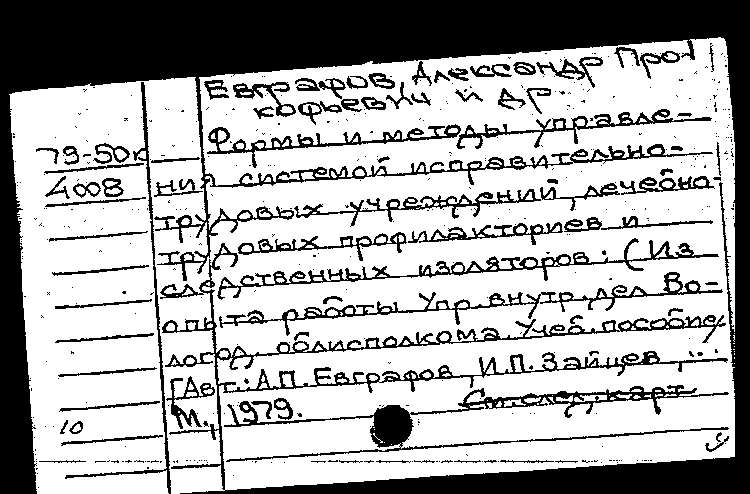 Евграфов, Александр Про-
кофьевич и др.
79-50к
4008
Формы и методы управле-
ния системой исправительно-
трудовых учреждений, лечебно-
трудовых профилакториев и
следственных изоляторов: (Из
опыта работы Упр. внутр. дел Во-
логод. облисполкома. Учеб. пособие/
[Авт.: А.П. Евграфов, И.П. Зайцев, ...
М., 1979.
См. след. карт.
10